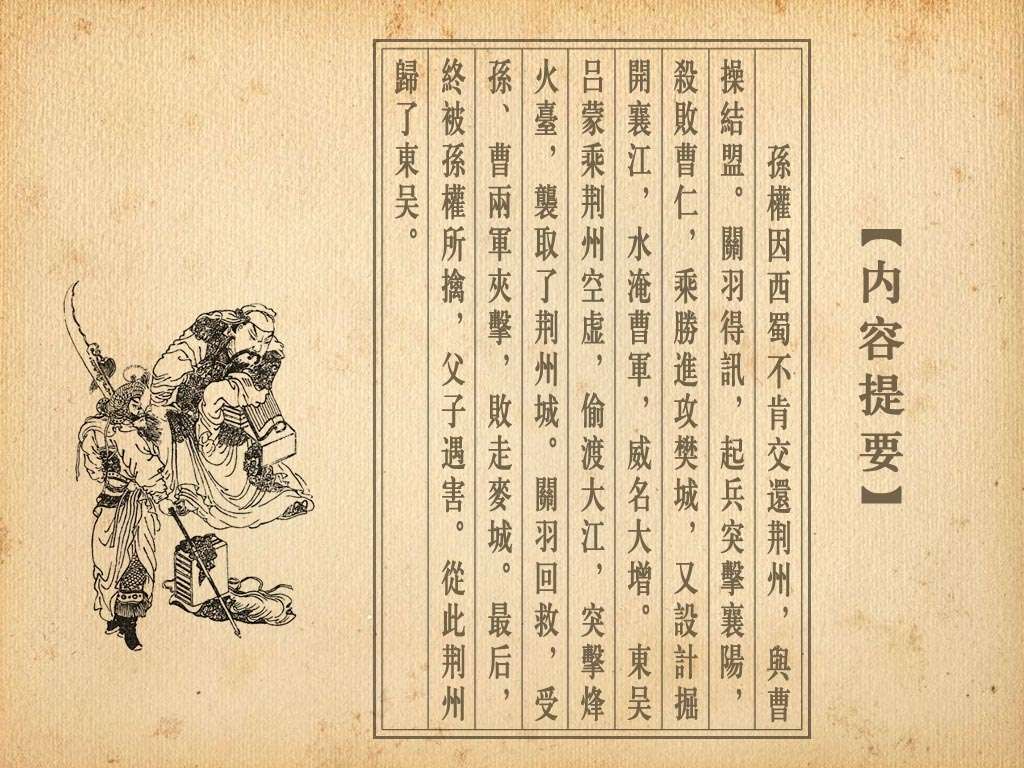 【内容提要】
孫權因西蜀不肯交還荆州，與曹
操結盟。關羽得訊，起兵突擊襄陽，
殺敗曹仁，乘勝進攻樊城，又設計掘
開襄江，水淹曹軍，威名大增。東吴
吕蒙乘荆州空虚，偷渡大江，突擊烽
火臺，襲取了荆州城。關羽回救，受
孫、曹兩軍夾擊，敗走麥城。最后，
終被孫權所擒，父子遇害。從此荆州
歸了東吴。